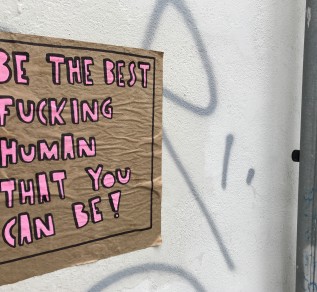 BE THE BEST
FUCKING
HUMAN
THAT YOU
CAN BE!